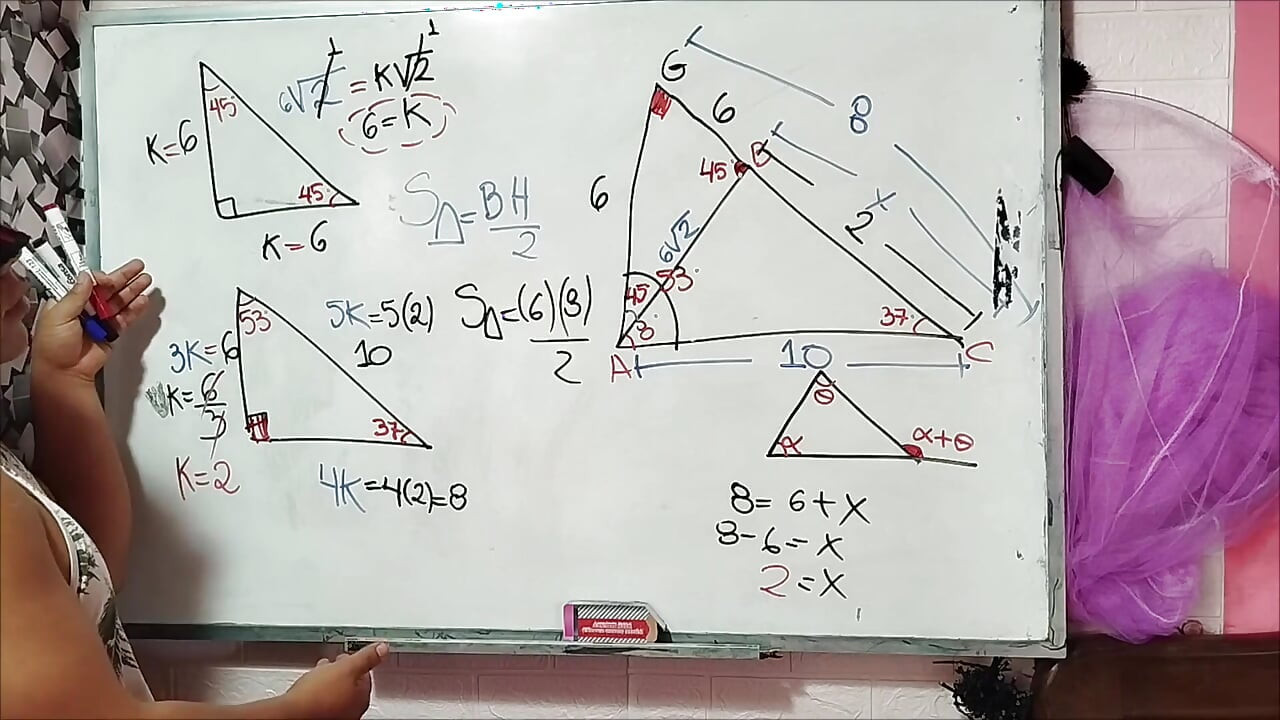 45°
K=6
45°
K=6
6√2 = K√2
1 1
6=K
S△=BH
2
53°
3K=6
K=6
3
K=2
37°
5K=5(2)
10
4K=4(2)=8
S△=(6)(8)
2
G
6
8
45° B
6
x
2
6√2
45°
53°
8°
37°
A
10
C
θ
α
α+θ
8= 6+x
8-6=x
2=x